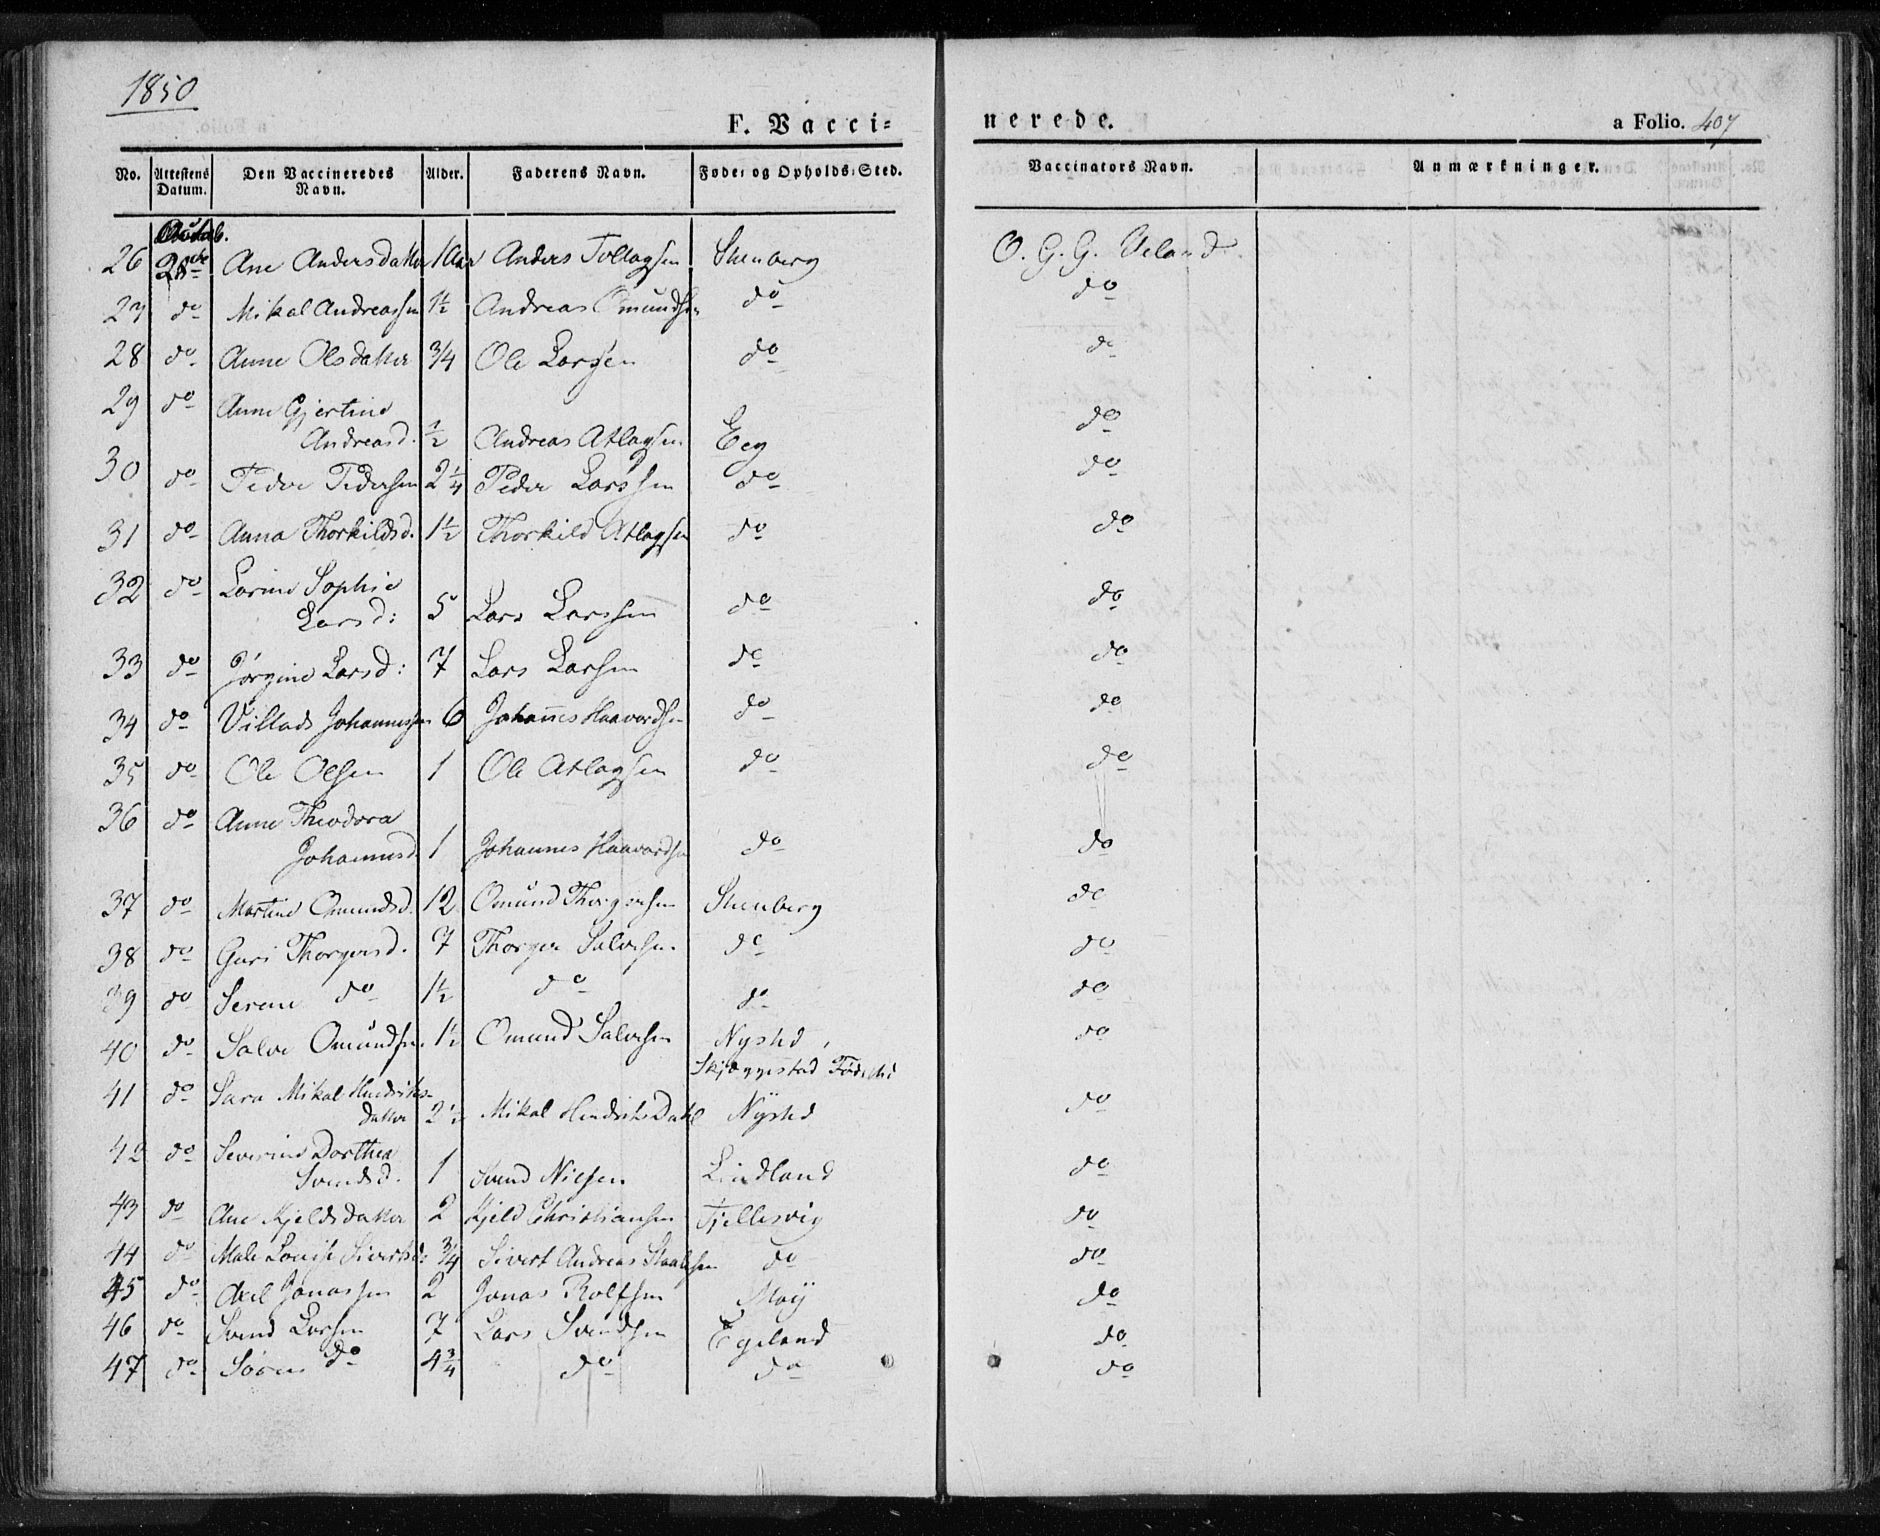 1850
F. Vacci= nerede. a Folio. 407
No. Attestens Datum. Den Vaccineredes Navn. Alder. Faderens Navn. Føde- og Opholds-Sted. Vaccinators Navn. Anmærkninger.
26 28de Ane Andersdatter 1 Aar Anders Tollagsen Stenberg O. G. G. Ueland
27 do Mikal Andreassen 1½ Andreas Omundsen do do
28 do Anne Olsdatter ¾ Ole Larsen do do
29 do Anne Gjertine
Andreasd. ½ Andreas Atlagsen Eeg do
30 do Peder Pedersen 2¼ Peder Larssen do do
31 do Anna Thorkildsd. 1½ Thorkild Atlagsen do do
32 do Larine Sophie
Larsd: 5 Lars Larssen do do
33 do Jørgine Larsd: 7 Lars Larsen do do
34 do Villads Johannessen 6 Johannes Haavordsen do do
35 do Ole Olsen 1 Ole Atlagsen do do
36 do Anne Theodora
Johannesd. 1 Johannes Haavordsen do do
37 do Martine Omundsd. 12 Omund Thorgersen Stenberg do
38 do Guri Thorgersd. 7 Thorger Salvesen do do
39 do Serene do 1½ do do do
40 do Salve Omundsen 1½ Omund Salvesen Nysted do
Skjæggestad Fødested
41 do Sara Mikal Hendriks-
datter 2½ Mikal Hendriks Dahl Nysted do
42 do Severine Dorthea
Svendsd. 1 Svend Nielsen Lindland do
43 do Ane Kjeldsdatter 2 Kjeld Christiansen Fjellesvig do
44 do Male Louise Sivertsd: ¾ Sivert Andreas Staalesen do do
45 do Axel Jonassen 2 Jonas Rolfsen Moÿ do
46 do Svend Larsen 7 Lars Svendsen Egeland do
47 do Søren do 4¾ do do do